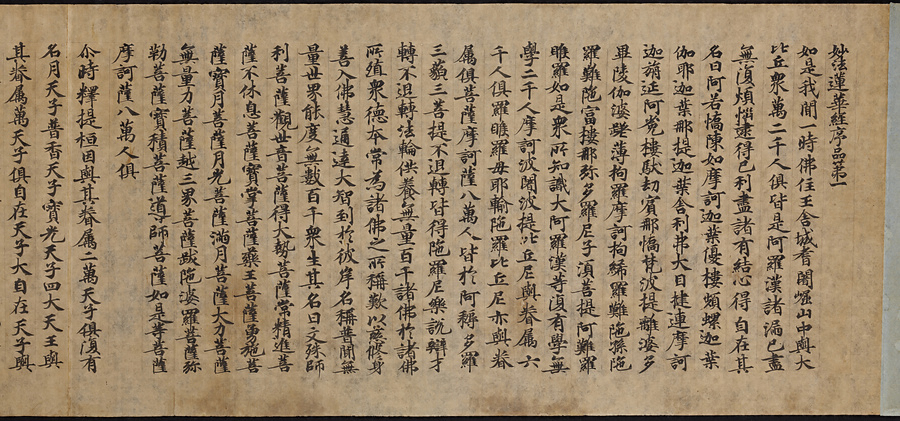 妙法蓮華經序品第一
如是我聞一時佛住王舍城耆闍崛山中與大
比丘衆萬二千人俱皆是阿羅漢諸漏已盡
無復煩惱逮得己利盡諸有結心得自在其
名曰阿若憍陳如摩訶迦葉優樓頻螺迦葉
伽耶迦葉那提迦葉舍利弗大目揵連摩訶
迦旃延阿㝹樓馱劫賓那憍梵波提離婆多
畢陵伽婆蹉薄拘羅摩訶拘絺羅難陁孫陁
羅難陁富樓那弥多羅尼子須菩提阿難羅
睺羅如是衆所知識大阿羅漢等復有學無
學二千人摩訶波闍波提比丘尼與眷属六
千人俱羅睺羅母耶輸陁羅比丘尼亦與眷
属俱菩薩摩訶薩八萬人皆於阿耨多羅
三藐三菩提不退轉皆得陁羅尼樂說辯才
轉不退轉法輪供養無量百千諸佛於諸佛
所殖衆德本常為諸佛之所稱歎以慈修身
善入佛慧通達大智到於彼岸名稱普聞無
量世界能度無數百千衆生其名曰文殊師
利菩薩觀世音菩薩得大勢菩薩常精進菩
薩不休息菩薩寶掌菩薩藥王菩薩勇施菩
薩寶月菩薩月光菩薩滿月菩薩大力菩薩
無量力菩薩越三界菩薩跋陁婆羅菩薩弥
勒菩薩寶積菩薩導師菩薩如是等菩薩
摩訶薩八萬人俱
尒時釋提桓因與其眷属二萬天子俱復有
名月天子普香天子寶光天子四大天王與
其眷属萬天子俱自在天子大自在天子與